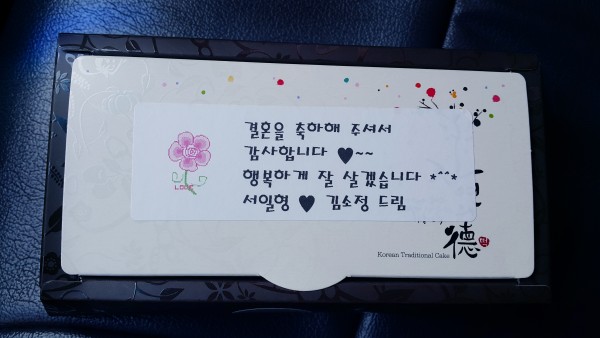 결혼을 축하해 주셔서
감사합니다 ♥~~
행복하게 잘 살겠습니다 *^^*
서일형 ♥ 김소정 드림
LOVE
德
Korean Traditional Cake